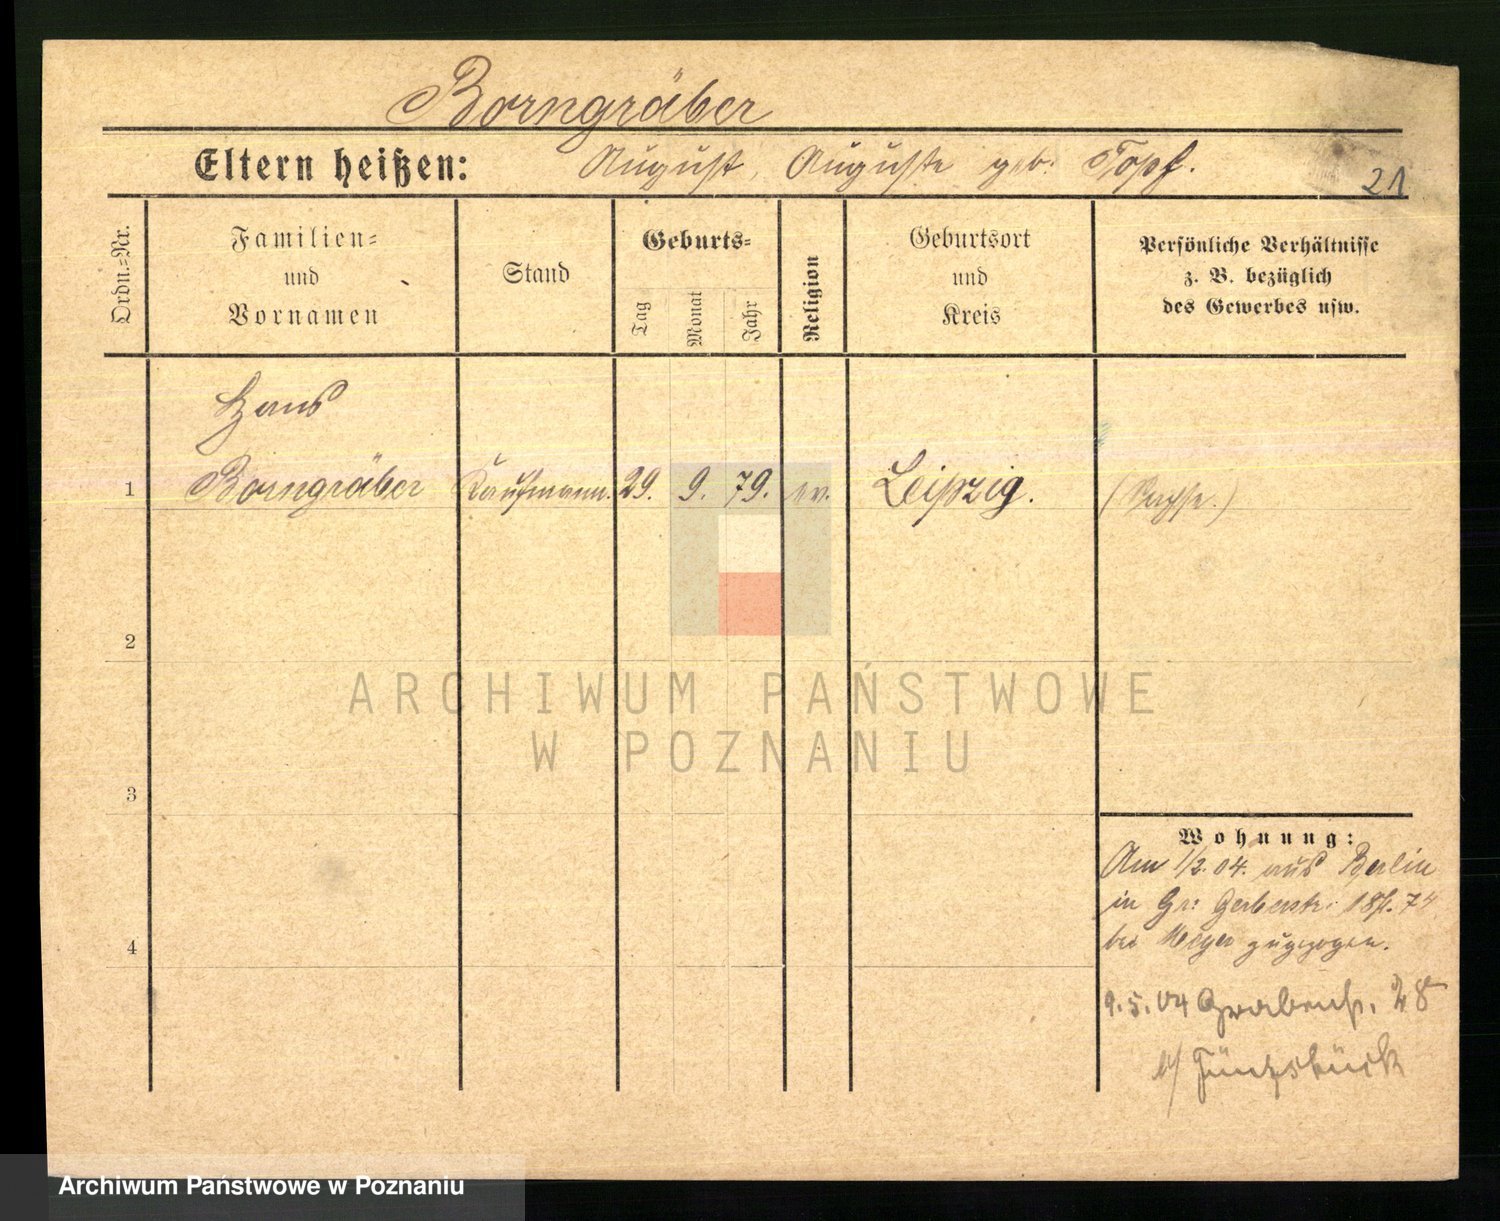 Borngräber
Eltern heißen: August, Auguste geb. Topf.
21
Ordn.=Nr.
Familien=
und
Vornamen
Stand
Geburts=
Tag
Monat
Jahr
Religion
Geburtsort
und
Kreis
Persönliche Verhältnisse
z. B. bezüglich
des Gewerbes usw.
Hans
1 Borngräber Kaufmann. 29. 9. 79. ev. Leipzig. (Sachse.)
2
3
4
Wohnung:
Am 1/2. 04. aus Berlin
in Gr: Gerberstr. 18
bei Meyer zugezogen.
9.5.04 Grabenstr. 28
b/
ARCHIWUM PAŃSTWOWE
W POZNANIU
Archiwum Państwowe w Poznaniu